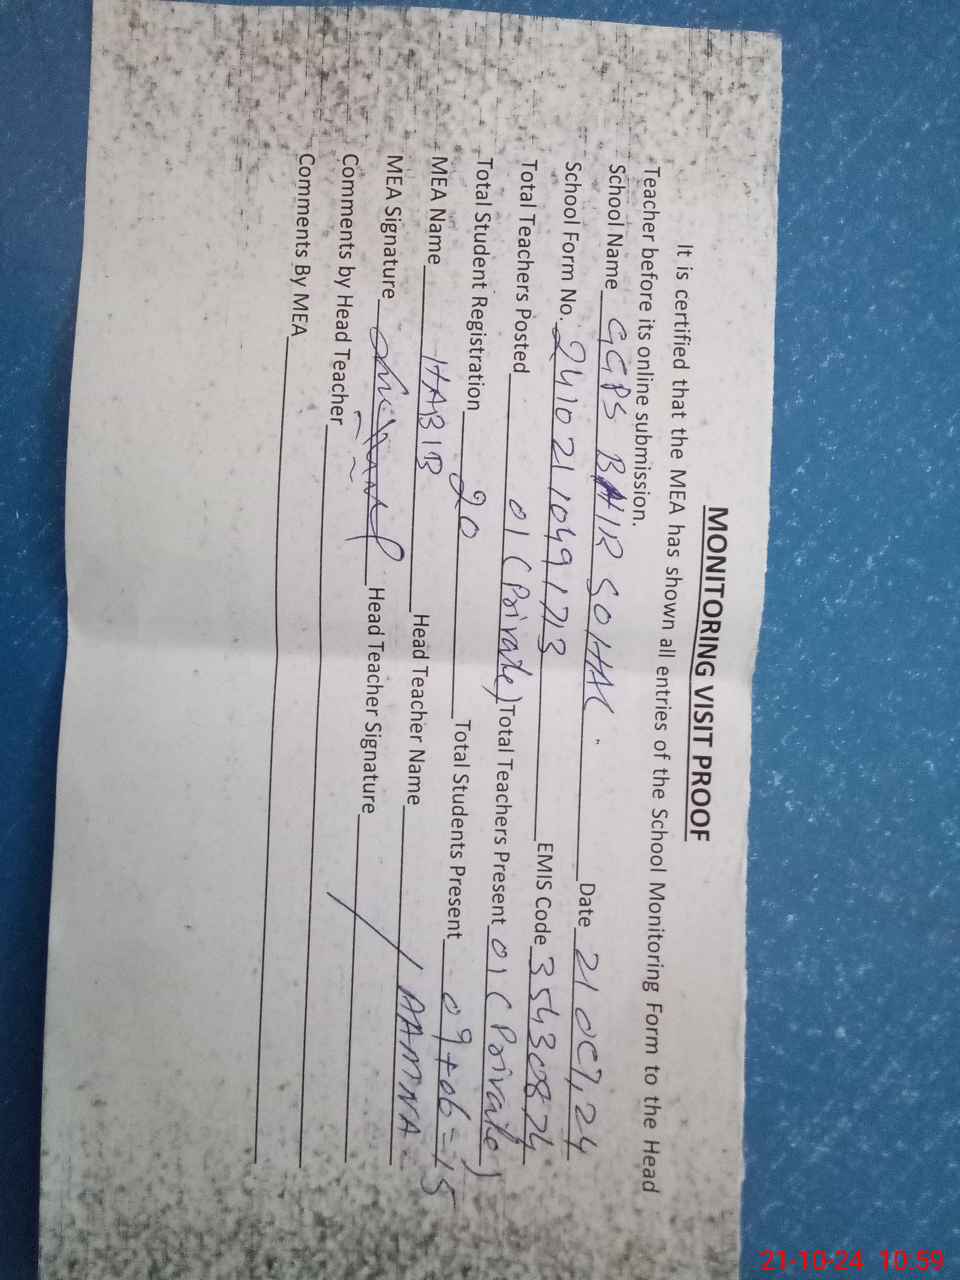 MONITORING VISIT PROOF
It is certified that the MEA has shown all entries of the School Monitoring Form to the Head
Teacher before its online submission.
School Name GGPS BHIR SOHAL. Date 21 OCT, 24
School Form No. 24102110491713 EMIS Code 35430874
Total Teachers Posted 01 (Private) Total Teachers Present 01 (Private)
Total Student Registration 20 Total Students Present 09+06=15
MEA Name HABIB Head Teacher Name AAMNA
MEA Signature Head Teacher Signature
Comments by Head Teacher
Comments By MEA
21-10-24 10:59